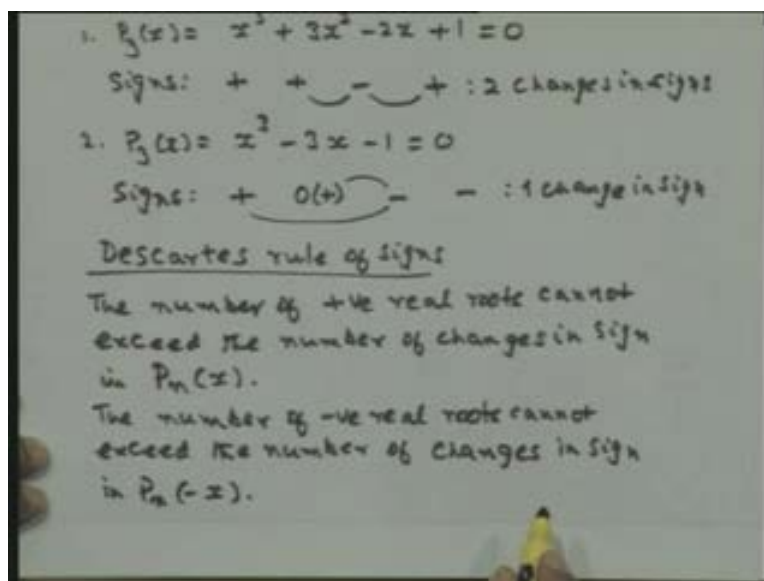 1. P₃(x) = x³ + 3x² - 2x + 1 = 0
Signs: + + - + : 2 changes in signs
2. P₃(x) = x³ - 3x - 1 = 0
Signs: + 0(+) - - : 1 change in sign
Descartes rule of signs
The number of +ve real roots cannot
exceed the number of changes in sign
in Pₙ(x).
The number of -ve real roots cannot
exceed the number of changes in sign
in Pₙ(-x).